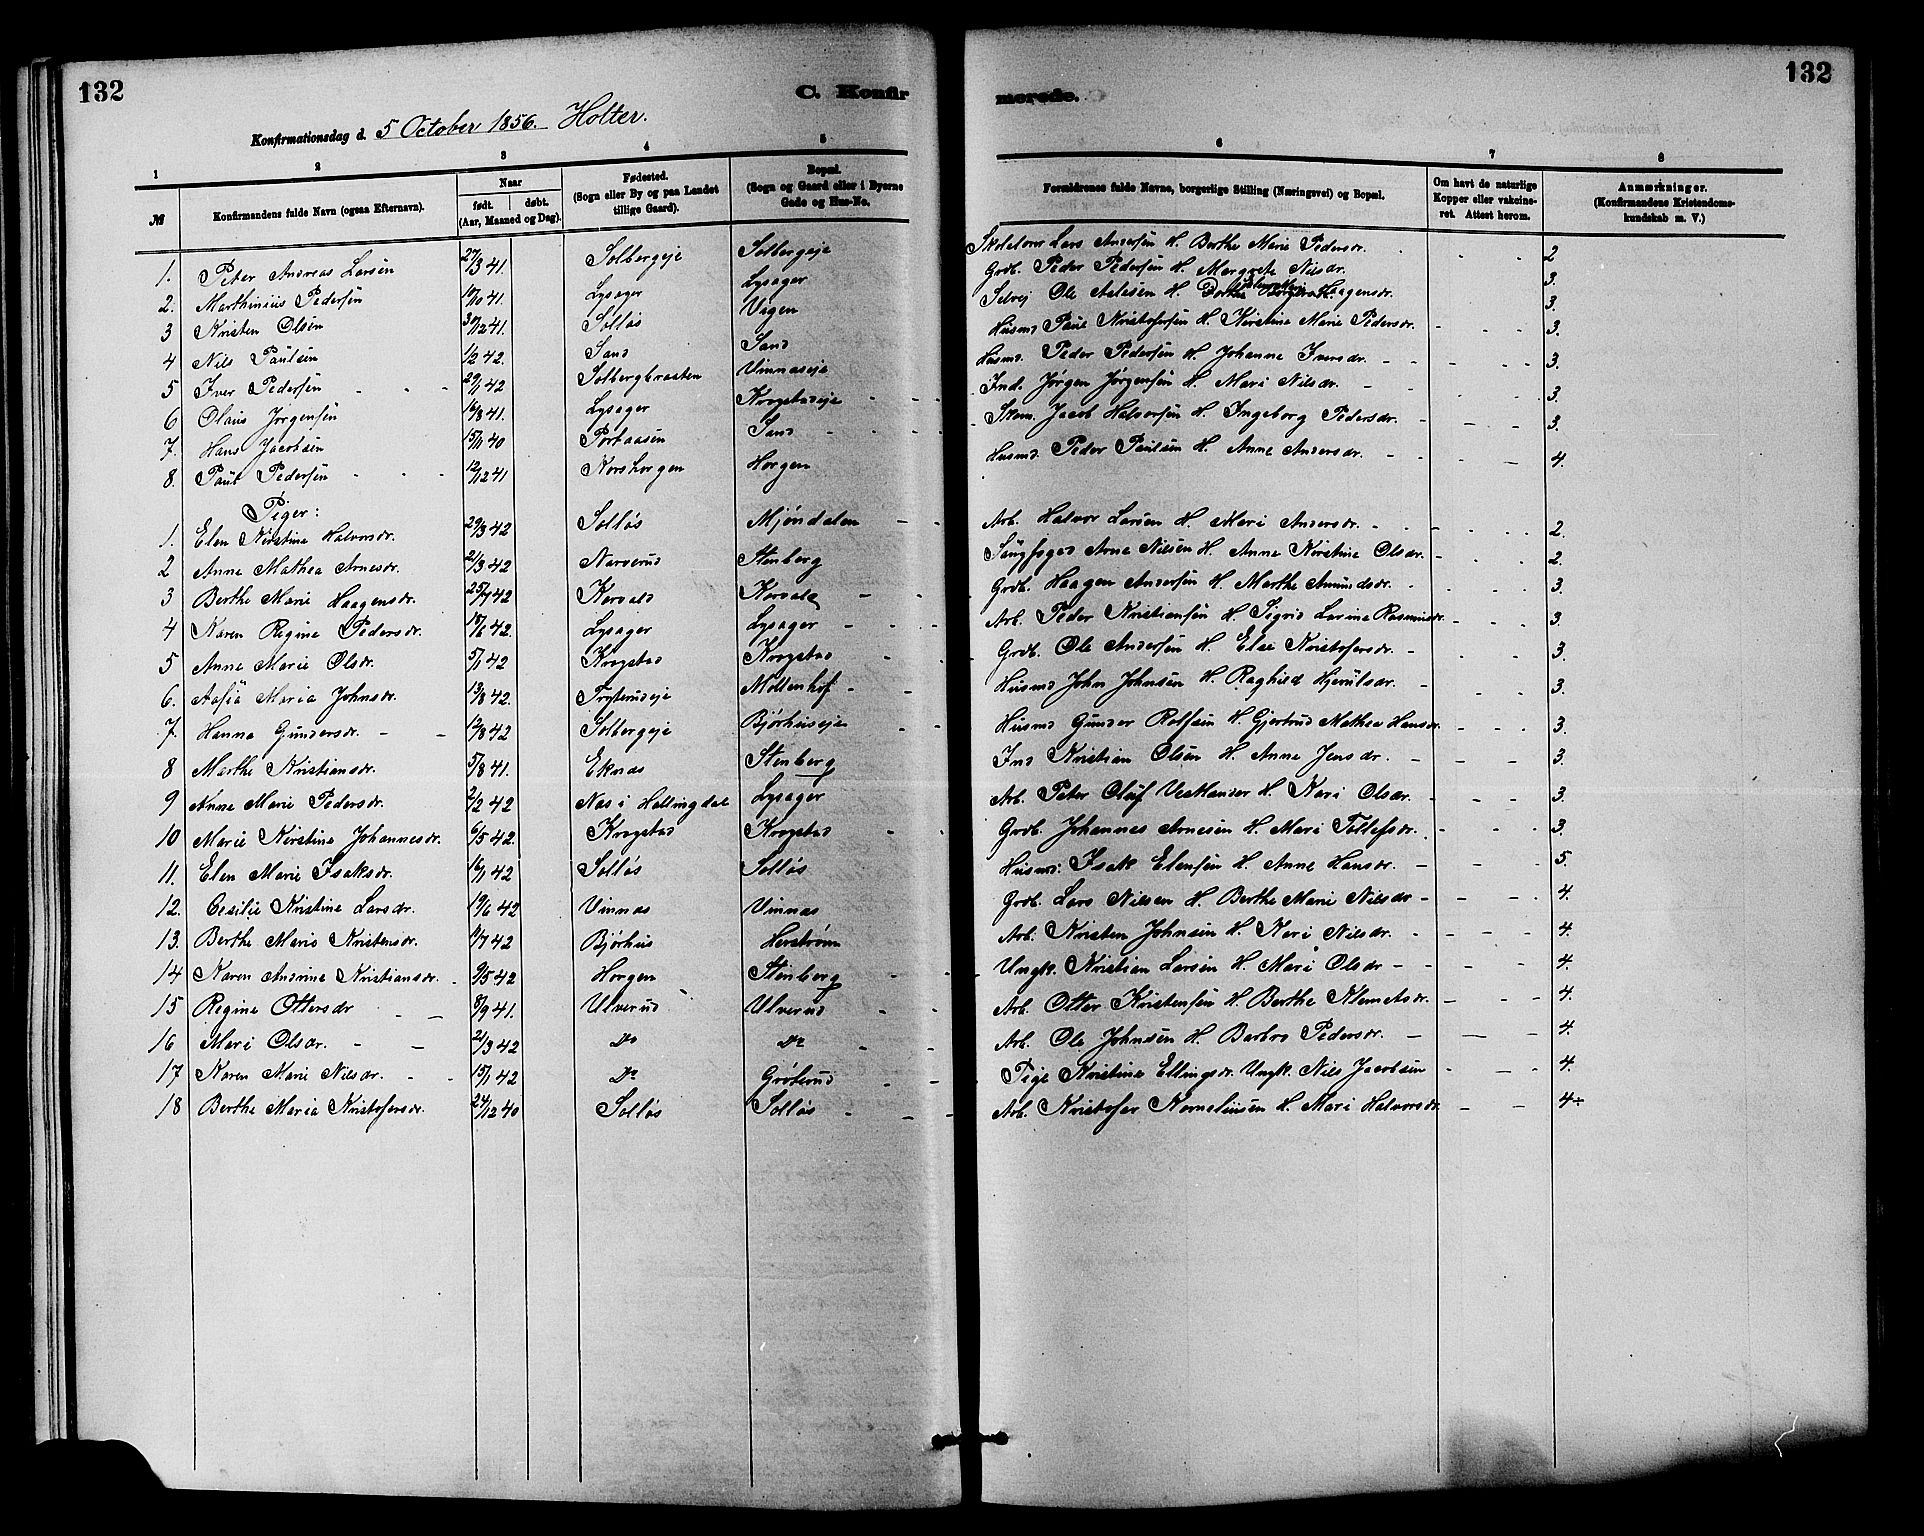 132
C. Konfir
Konfirmationsdag d. 5 October 1856. Holter.
1 2 3 4 5
№ Konfirmandens fulde Navn (ogsaa Efternavn). Naar født. døbt. (Aar, Maaned og Dag). Fødested. (Sogn eller By og paa Landet tillige Gaard). Bopæl. (Sogn og Gaard eller i Byerne Gade og Hus-No.
1. Peter Andreas Larsen 27/3 41. Solbergeje Solbergeje
2. Marthinius Pedersen 18/10 41. Lysager Lysager
3 Kristen Olsen 30/12 41. Solløs Vigen
4 Nils Paulsen 1/2 42. Sand Sand
5 Iver Pedersen 29/1 42 Solbergbraaten Vinnaseje
6 Olaus Jørgensen 16/8 41. Lysager Krogstadeje
7. Hans Jacobsen 15/11 40 Portaasen Sand
8. Paul Pedersen 12/12 41 Korshorgen Horgen
Piger:
1. Elen Kirstine Halvorsdr. 29/3 42 Solløs Mjøndalen
2 Anne Mathea Arnesdr. 21/3 42 Narverud Stenberg
3 Berthe Marie Haagensdr. 25/7 42 Korvald Korvald
4 Karen Regine Pedersdr. 18/6 42. Lysager Lysager
5 Anne Marie Olsdr. 5/1 42 Krogstad Krogstad
6. Maria Johnsdr. 13/8 42. Trysterudeje Møllenhof
7. Hanna Gundersdr. 12/8 42 Solbergeje Bjørhuseje
8 Marthe Kristiansdr. 5/8 41. Eknas Stenberg
9 Anne Marie Pedersdr. 2/2 42 Nas i Hallingdal Lysager
10 Marie Kirstine Johannesdr. 6/5 42. Krogstad Krogstad
11. Elen Marie Isaksdr. 16/1 42 Solløs Solløs
12. Cesilie Kristine Larsdr. 19/6 42 Vinnas Vinnas
13. Berthe Marie Kristensdr. 11/7 42 Bjørhus Herstrøm
14 Karen Andrine Kristiansdr. 9/5 42 Horgen Stenberg
15 Regine Ottersdr 8/9 41. Ulverud Ulverud
16 Mari Olsdr. 21/3 42 Do Do
17 Karen Marie Nilsdr. 15/1 42 Do Grøterud
18 Berthe Maria Kristofersdr. 24/12 40 Solløs Solløs
132
merede.
6 7 8
Forældrenes fulde Navne, borgerlige Stilling (Næringsvei) og Bopæl. Om havt de naturlige Kopper eller vakcineret. Attest herom. Anmærkninger. (Konfirmandens Kristendomskundskab m. V.)
Skolelærer Lars Andersen H. Berthe Marie Pedersdr. 2
Grdb. Peder Pedersen H. Margrete Nilsdr. 3.
Selvej Ole Aslesen H. Dorthe Haagensdr. 3.
Husmd Paul Kristofersen H. Kirstine Marie Pedersdr. 3.
Husmd. Peder Pedersen H. Johanne Iversdr. 3.
Ind. Jørgen Jørgensen H. Mari Nilsdr. 3.
Skom. Jacob Halvorsen H. Ingeborg Pedersdr. 3.
Husmd Peder Paulsen H. Anne Andersdr. 4.
Arb. Halvor Larsen H. Mari Andersdr. 2.
Saugfoged Arne Nilsen H. Anne Kirstine Olsdr. 2.
Grdb. Haagen Andersen H. Marthe Amundsdr. 3.
Arb. Peder Kristiansen H. Sigrid Larine Rasmusdr. 3.
Grdb. Ole Andersen H. Else Kristofersdr. 3.
Husmd John Johnsen H. Raghild Hjerulsdr. 3.
Husmd Gunder Rolfsen H. Gjertrud Mathea Hansdr. 3.
Ind Kristian Olsen H. Anne Jensdr. 3.
Arb. Peter Oluf Vestlander H. Kari Olsdr. 3.
Grdb. Johannes Arnesen H. Mari Tollefsdr. 3.
Husmd: Isak Elensen H. Anne Hansdr. 5.
Grdb. Lars Nilsen H. Berthe Mari Nilsdr 4.
Arb. Kristen Johnsen H. Kari Nilsdr. 4.
Ungk. Kristian Larsen H. Mari Olsdr 4.
Arb. Otter Kristensen H. Berthe Klemetsdr. 4.
Arb. Ole Johnsen H. Barbro Pedersdr. 4.
Pige Kristine Ellingsdr. Ungk. Nils Jacobsen 4.
Arb. Kristofer Korneliusen H. Mari Halvorsdr. 4÷